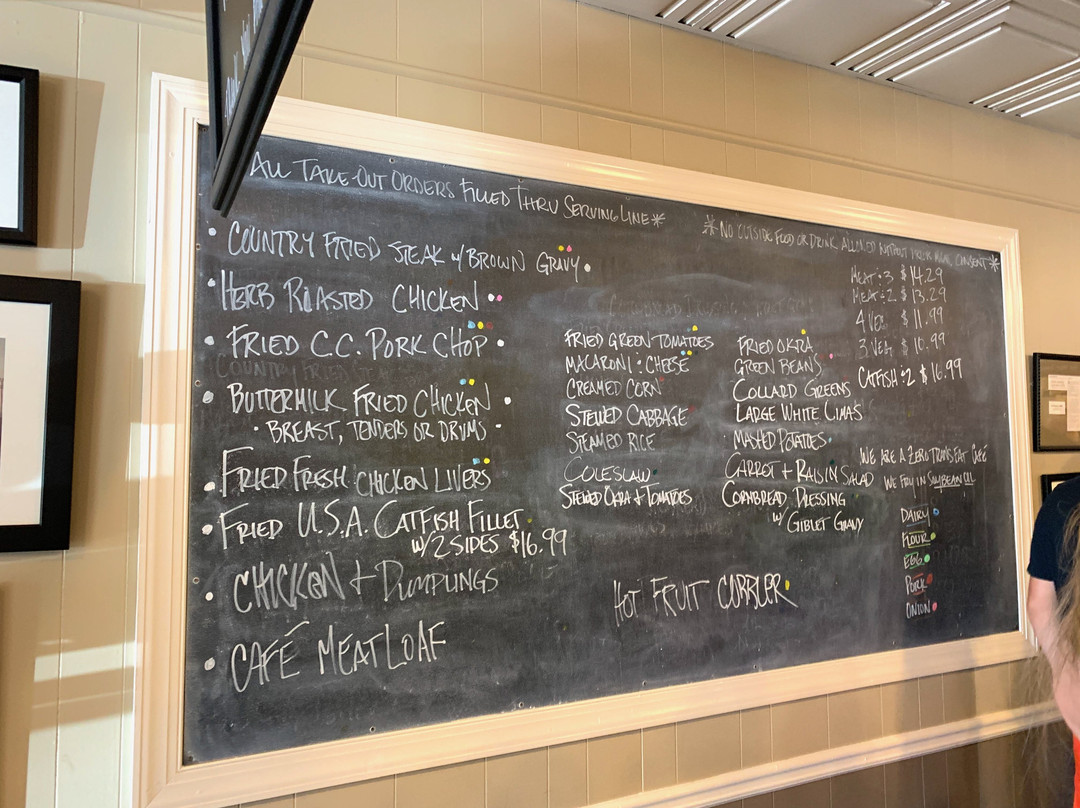 All Take-Out Orders Filled Thru Serving Line*
*No Outside Food or Drink Allowed Without Consent*
• Country Fried Steak w/ Brown Gravy •
• Herb Roasted Chicken
• Fried C.C. Pork Chop •
• Buttermilk Fried Chicken •
• Breast, Tenders or Drums •
• Fried Fresh Chicken Livers
• Fried U.S.A. Catfish Fillet
w/ 2 Sides $16.99
• Chicken + Dumplings
• Café Meatloaf
Fried Green Tomatoes
Macaroni : Cheese
Creamed Corn
Stewed Cabbage
Steamed Rice
Coleslaw
Stewed Okra + Tomatoes
Fried Okra
Green Beans
Collard Greens
Large White Limas
Mashed Potatoes
Carrot + Raisin Salad
Cornbread Dressing
w/ Giblet Gravy
Hot Fruit Cobbler
Meat : 3 $14.29
Meat : 2 $13.29
4 Veg $11.99
3 Veg $10.99
Catfish : 2 $16.99
We are a Zero Trans Fat Café
We Fry in Soybean Oil
Dairy
Flour
Egg
Pork
Onion